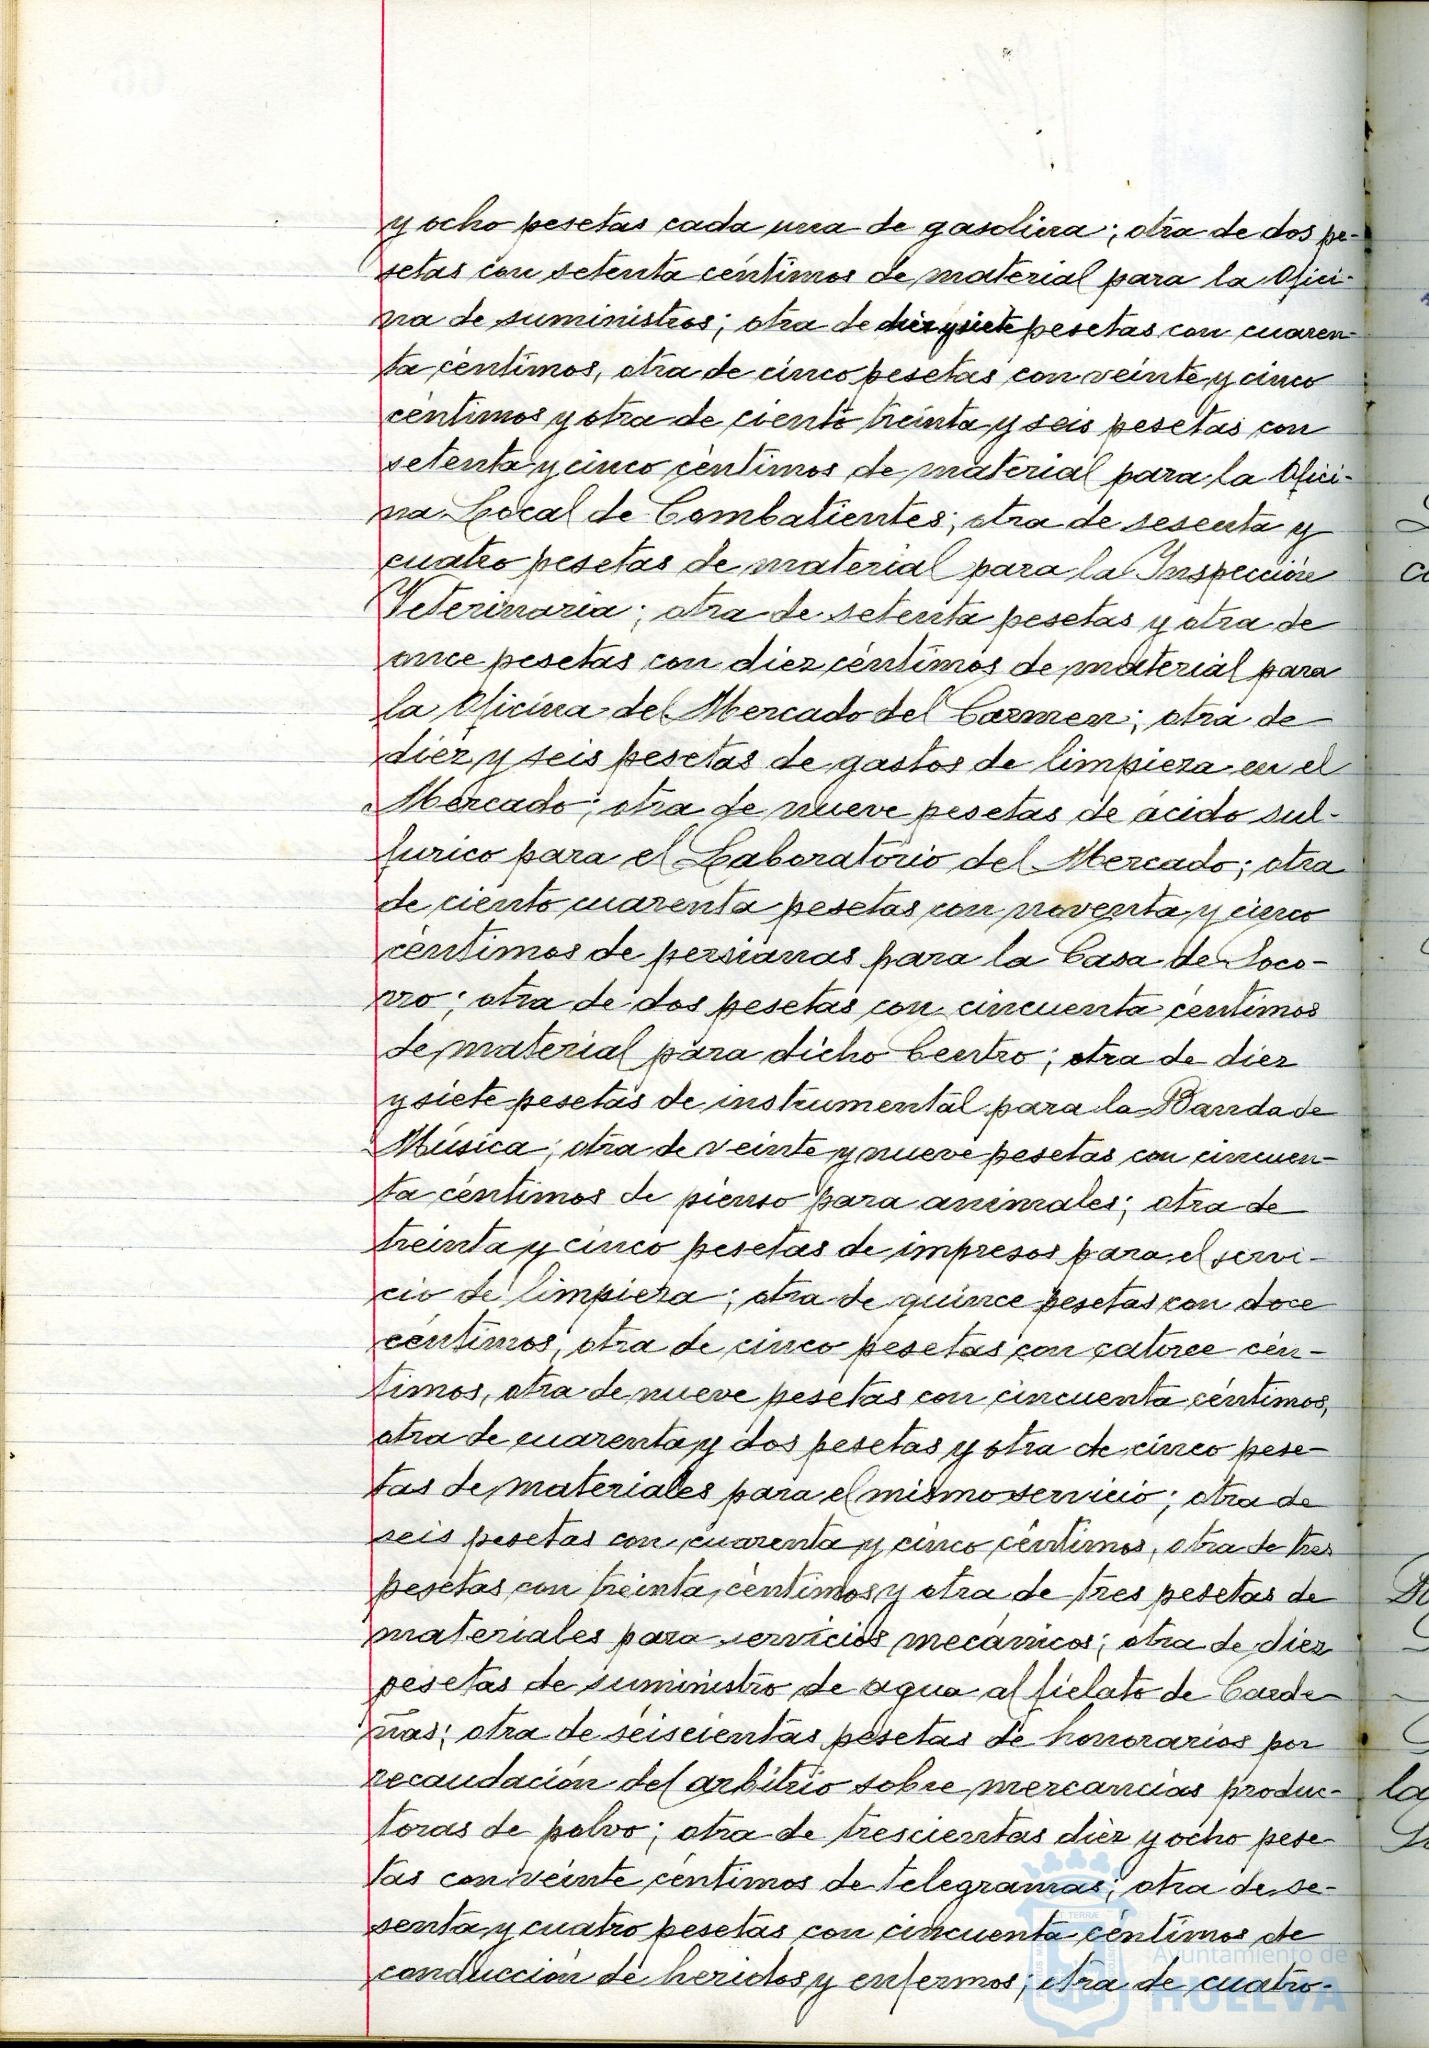 y ocho pesetas cada una de gasolina; otra de dos pe-
setas con setenta céntimos de material para la Ofici-
na de suministros; otra de diez y siete pesetas con cuaren-
ta céntimos, otra de cinco pesetas con veinte y cinco
céntimos y otra de ciento treinta y seis pesetas con
setenta y cinco céntimos de material para la Ofici-
na Local de Combatientes; otra de sesenta y
cuatro pesetas de material para la Inspección
Veterinaria; otra de setenta pesetas y otra de
once pesetas con diez céntimos de material para
la Oficina del Mercado del Carmen; otra de
diez y seis pesetas de gastos de limpieza en el
Mercado; otra de nueve pesetas de ácido sul-
furico para el Laboratorio del Mercado; otra
de ciento cuarenta pesetas con noventa y cinco
céntimos de persianas para la Casa de Soco-
rro; otra de dos pesetas con cincuenta céntimos
de material para dicho Centro; otra de diez
y siete pesetas de instrumental para la Banda de
Música; otra de veinte y nueve pesetas con cincuen-
ta céntimos de pienso para animales; otra de
treinta y cinco pesetas de impresos para el servi-
cio de limpieza; otra de quince pesetas con doce
céntimos, otra de cinco pesetas con catorce cén-
timos, otra de nueve pesetas con cincuenta céntimos,
otra de cuarenta y dos pesetas y otra de cinco pese-
tas de materiales para el mismo servicio; otra de
seis pesetas con cuarenta y cinco céntimos, otra de tres
pesetas con treinta céntimos y otra de tres pesetas de
materiales para servicios mecánicos; otra de diez
pesetas de suministro de agua al fielato de Carde-
ñas; otra de seiscientas pesetas de honorarios por
recaudación del arbitrio sobre mercancías produc-
toras de polvo; otra de trescientas diez y ocho pese-
tas con veinte céntimos de telegramas; otra de se-
senta y cuatro pesetas con cincuenta céntimos de
conducción de heridos y enfermos; otra de cuatro-
Ayuntamiento de
HUELVA